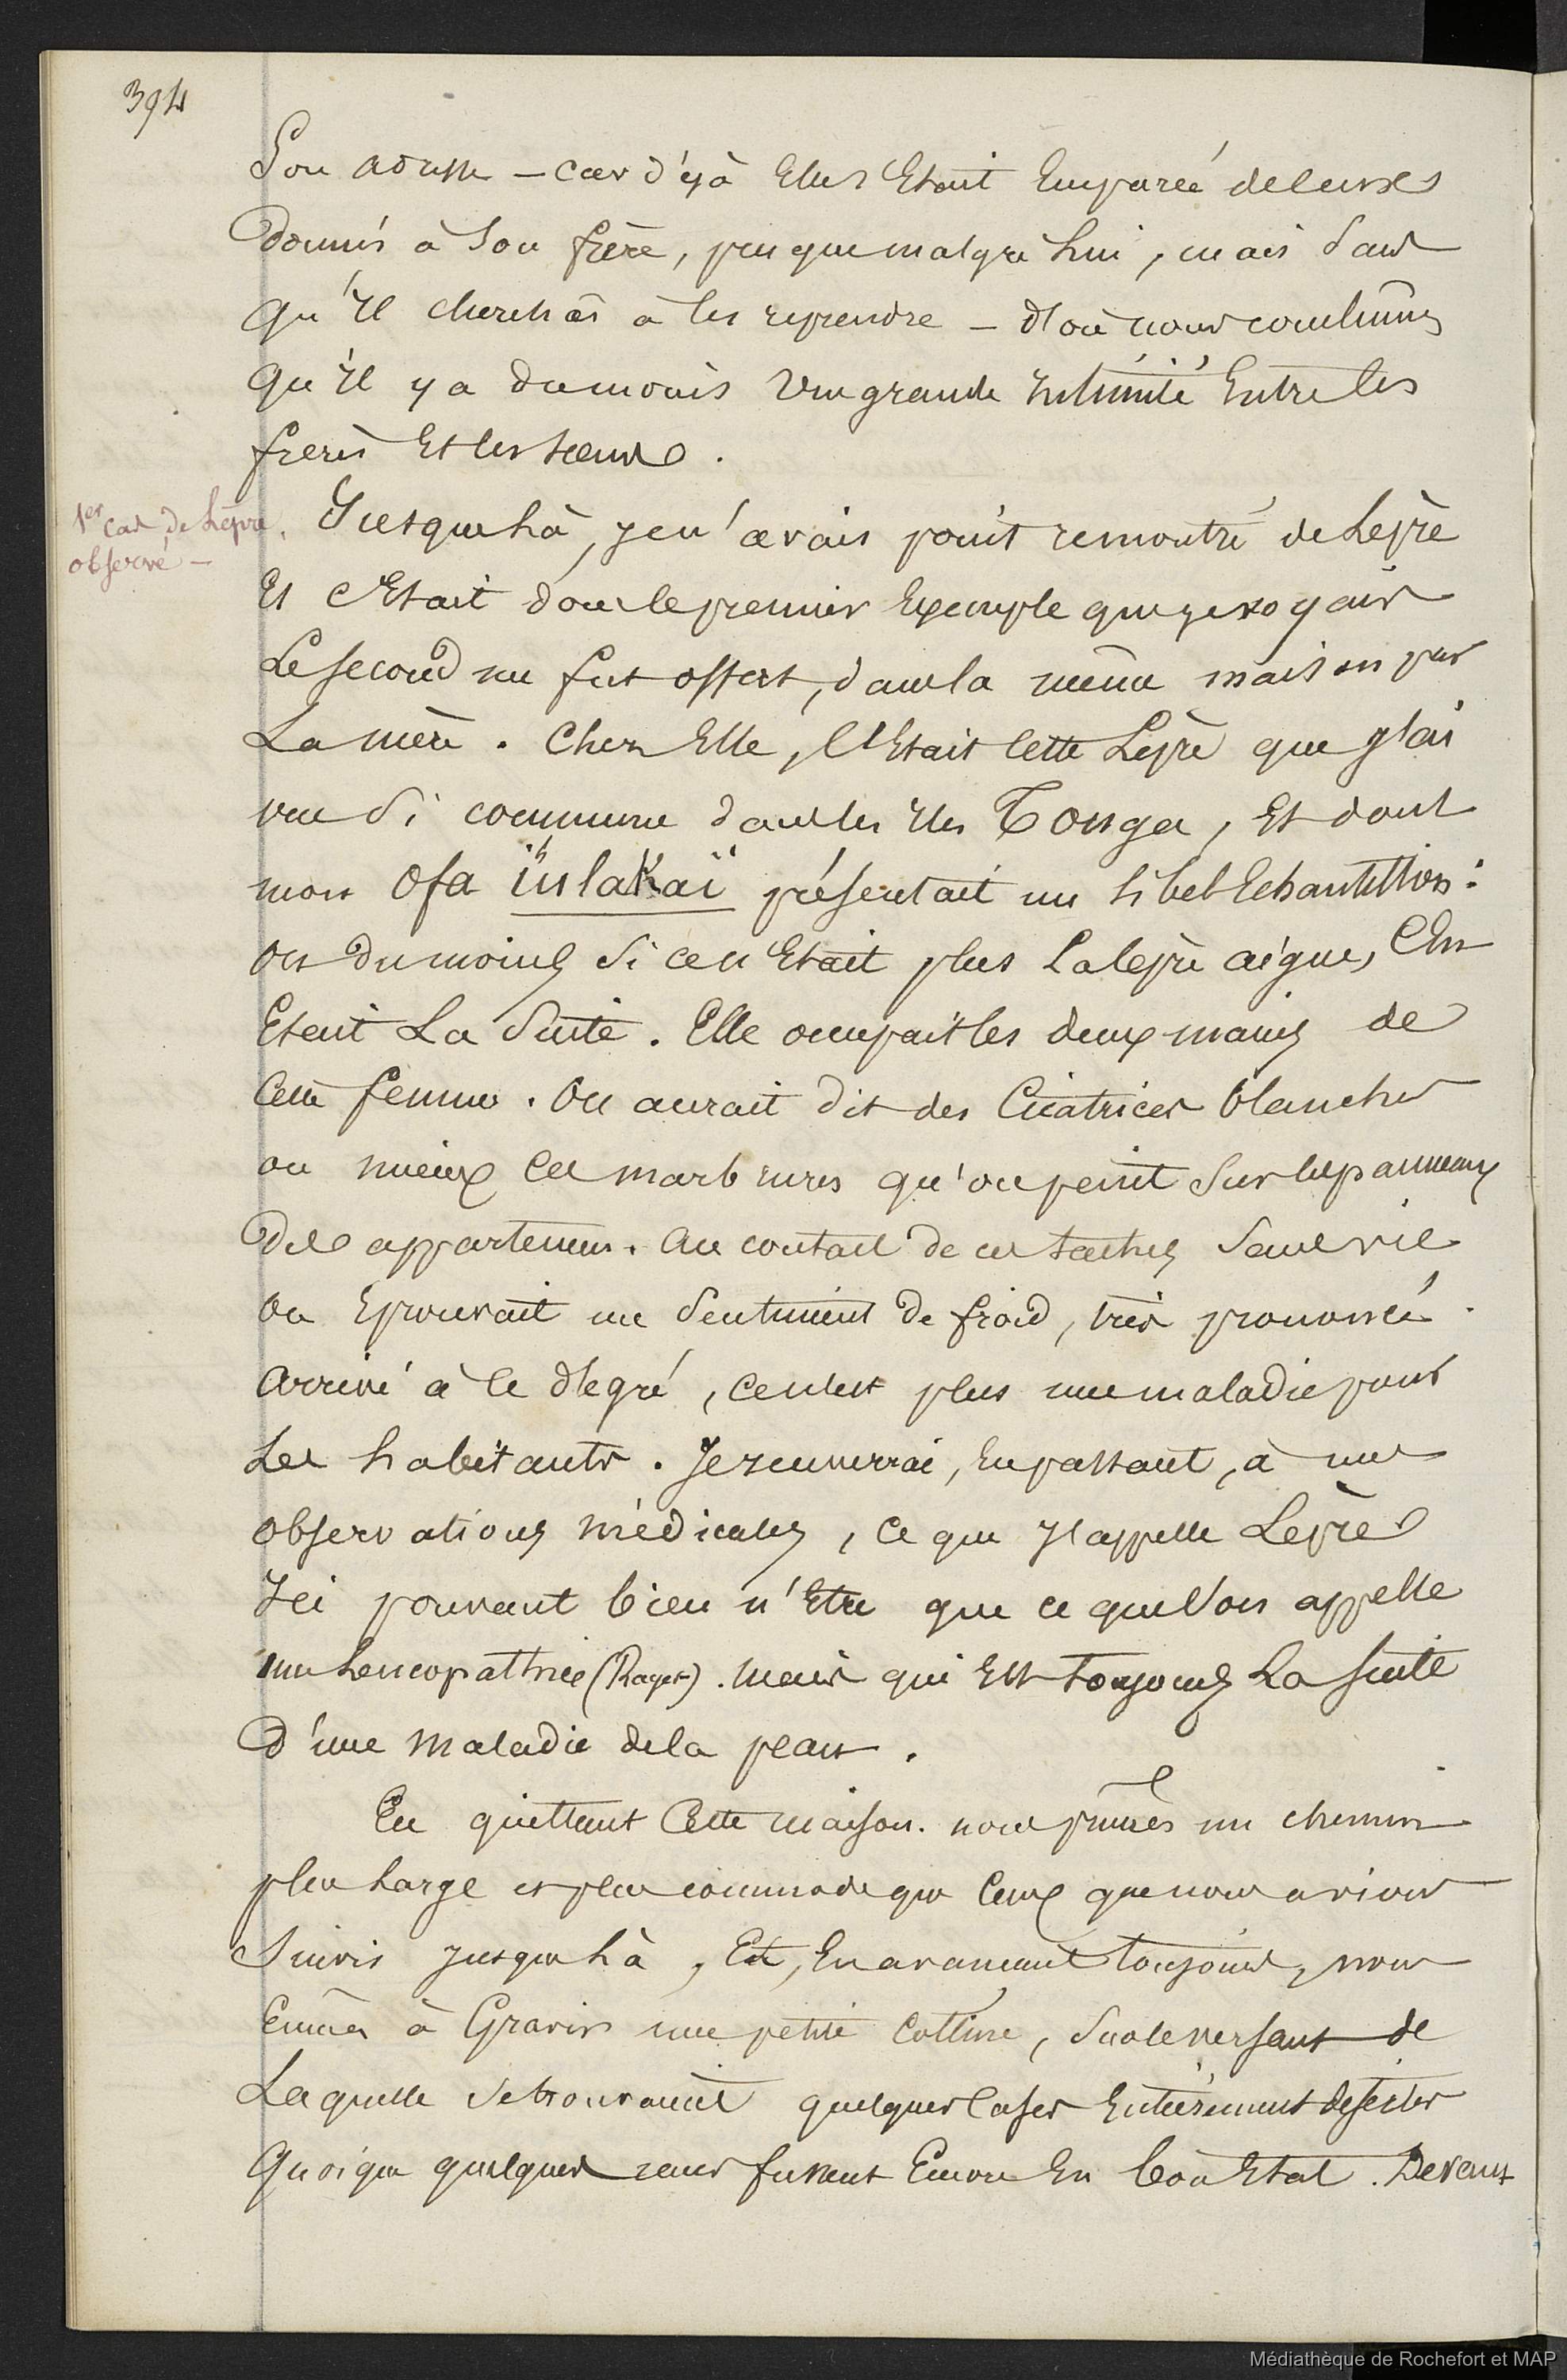 394
Son adresse — car déjà Elle s'Etait Emparée de ceux
donnés à Son frère, presque malgré lui, mais Sans
qu'Il cherchât à les reprendre — d'où nous conclûmes
qu'Il y a du moins Une grande Intimité Entre les
frères Et les sœurs.
1er cas de Lèpre
observé —
Jusques là, je n'avais point rencontré de Lèpre
Et C'Etait donc le premier Exemple que je voyais
Le second me fut offert, dans la même maison par
La mère. Chez Elle, C'Etait cette Lèpre que j'ai
vue Si commune dans les Iles Tonga, Et dont
mon Ofa présentait un si bel Echantillon:
ou du moins Si ce n'Etait plus La lèpre aigue, C'En
Etait La Suite. Elle occupait les deux mains de
Cette femme. On aurait dit des Cicatrices blanches
ou mieux Ces marbrures qu'on peint Sur les panneaux
des appartemens. Au contact de ces taches Sans vie
on Eprouvait un Sentiment de froid, très prononcé.
Arrivé à ce degré, ce n'est plus une maladie pour
Les habitants. Je renverrai, En passant, à mes
observations médicales, ce que J'appelle Lèpre
Ici pouvant bien n'Etre que ce que l'on appelle
une Leucopathie (Rayer). mais qui Est toujours La Suite
d'une maladie de la peau.
En quittant Cette maison. nous prîmes un chemin
plus Large et plus commode que Ceux que nous avions
Suivis jusques là, Et, En avançant toujours, nous
Eûmes à Gravir une petite Colline, Sur le versant de
Laquelle Se trouvaient quelques Cases Entièrement désertes
Quoique quelques unes fussent Encore En bon Etat. Devant
Médiathèque de Rochefort et MAP